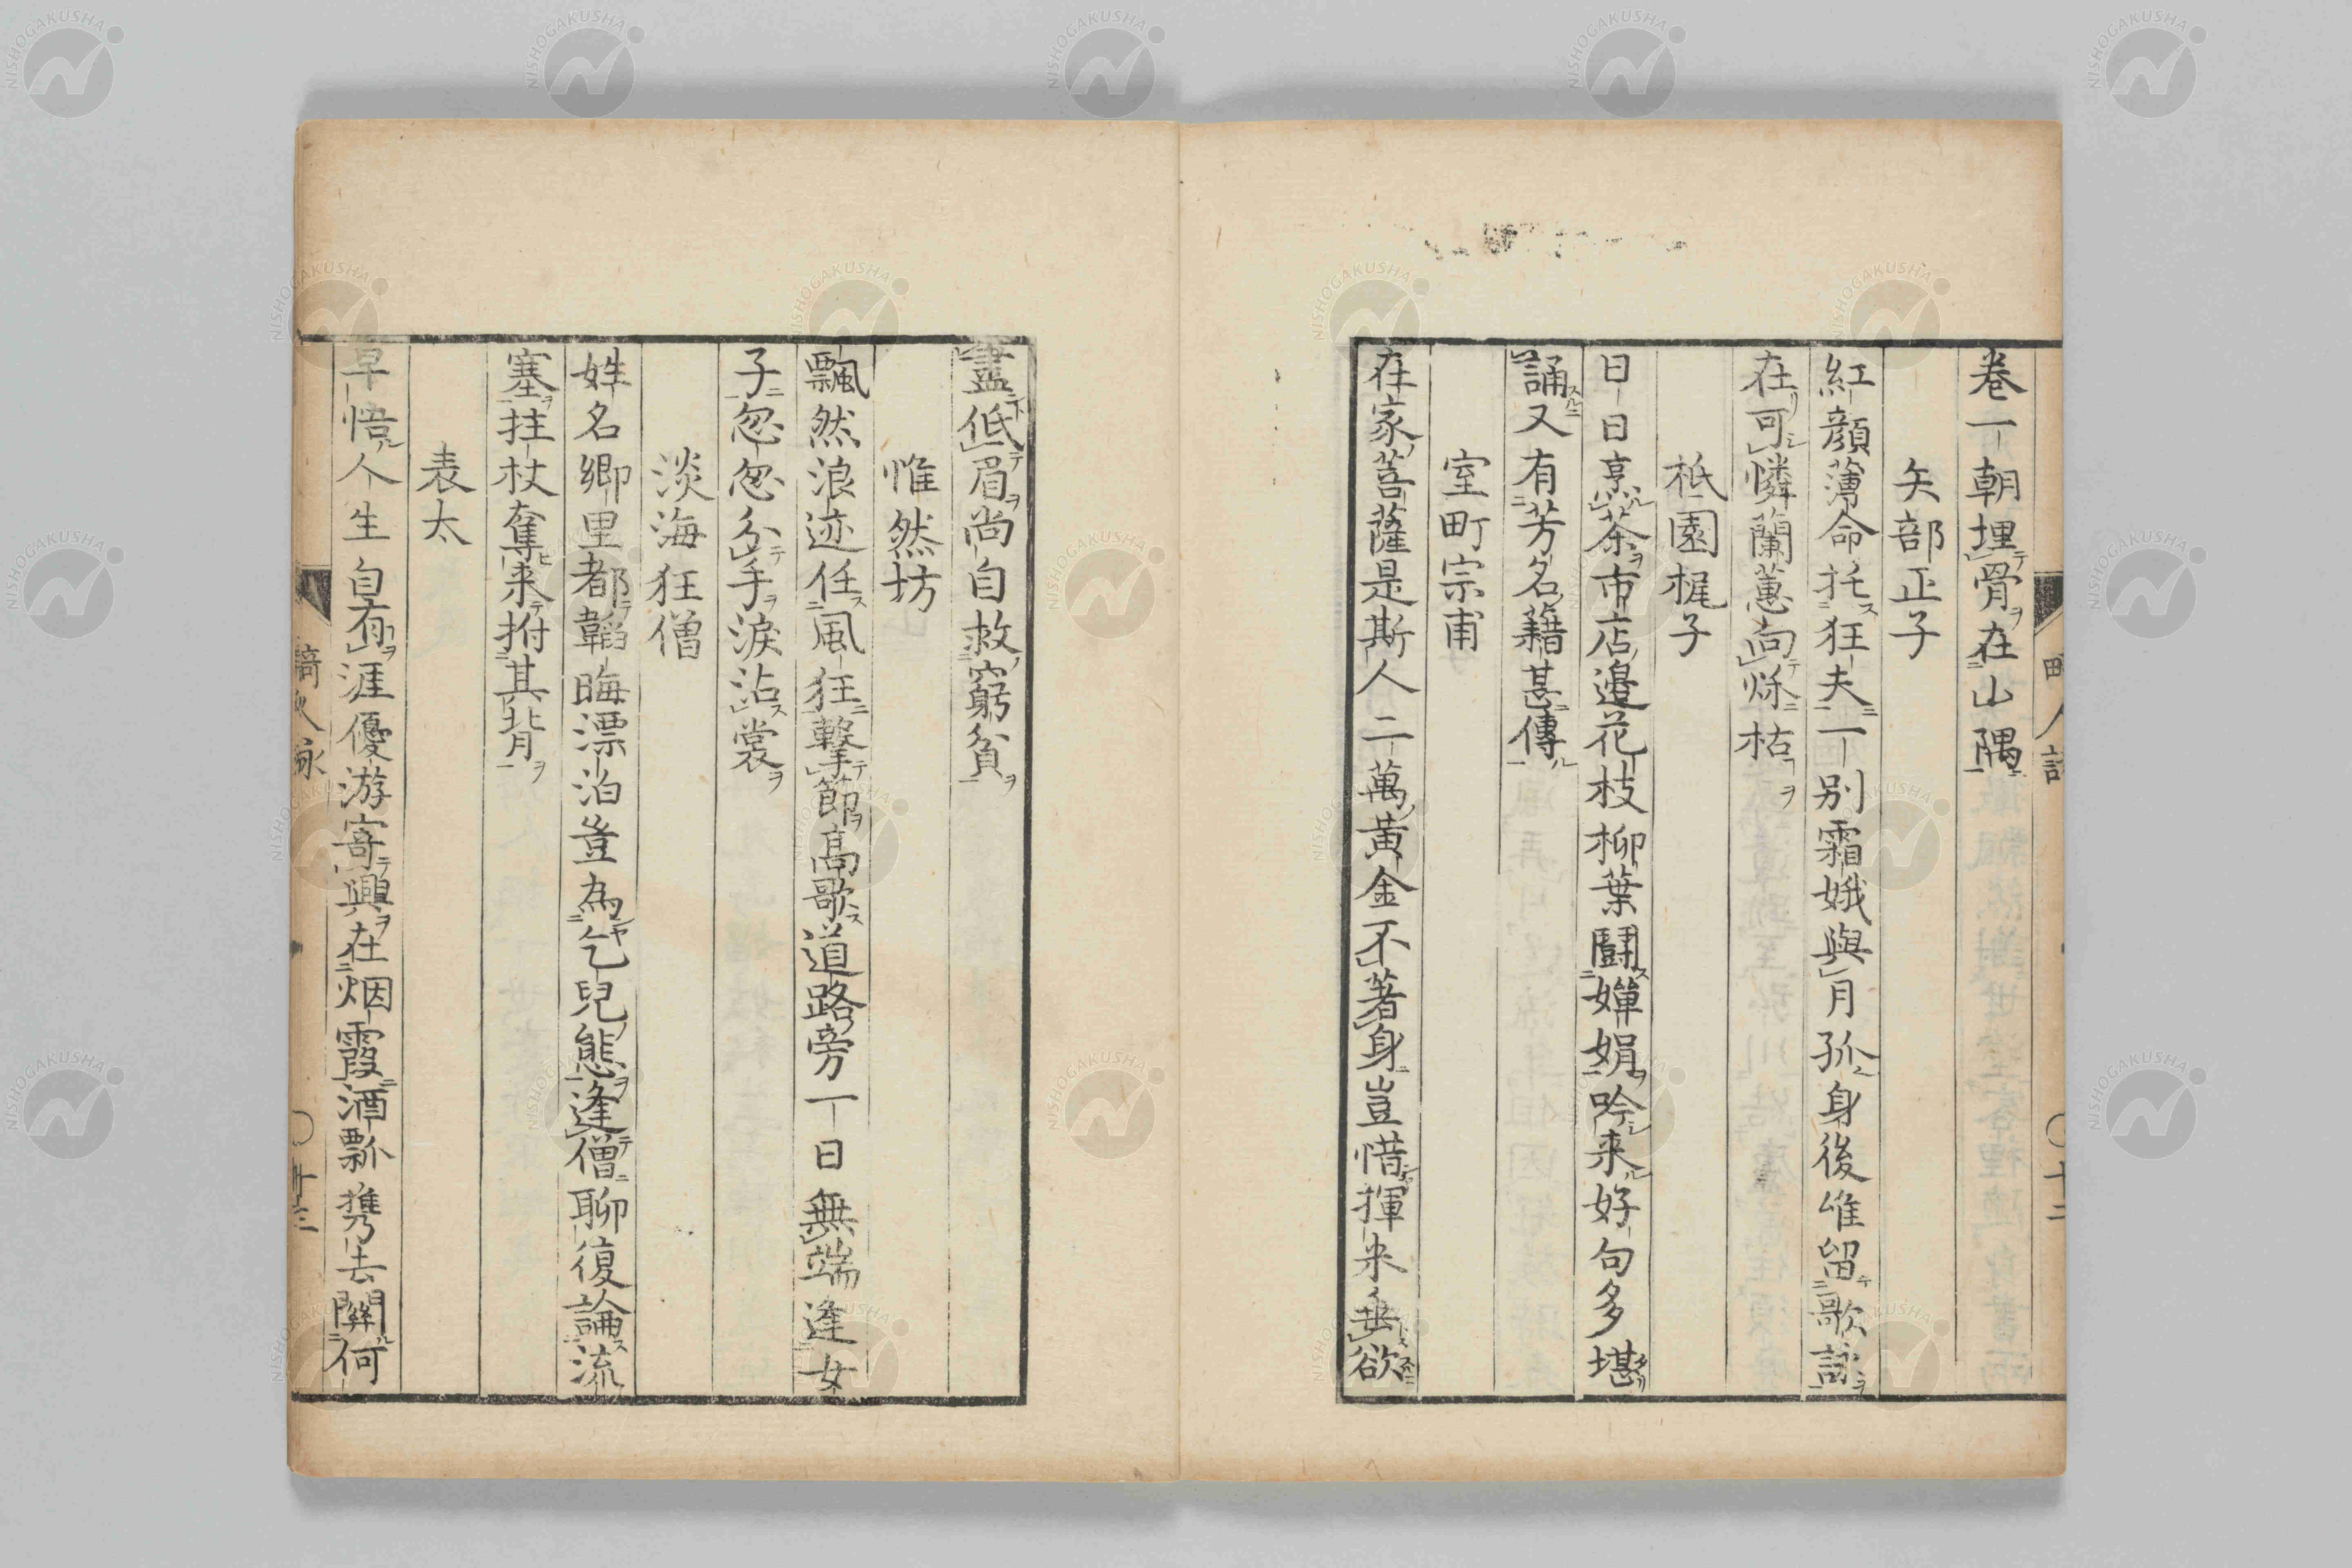 卷一朝埋骨在山隅
矢部正子
紅顏薄命托狂夫一別霜娥與月孤身後唯留歌詠
在可憐蘭蕙向秋枯
祗園梶子
日日烹茶市店邊花枝柳葉鬪嬋娟吟来好句多堪
誦又有芳名籍甚傳
室町宗甫
在家菩薩是斯人二萬黄金不著身豈惜揮来垂欲
盡低眉尚自救窮貧
惟然坊
飄然浪迹任風狂撃節高歌道路旁一日無端逢女
子忽忽分手淚沾裳
淡海狂僧
姓名郷里都韜晦漂泊豈為乞兒態逢僧聊復論流
塞拄杖奪来拊其背
表太
早悟人生自有涯優游寄興在烟霞酒瓢携去關何